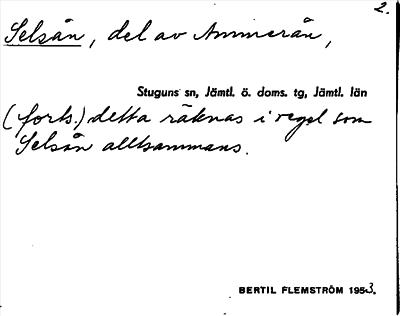 2.
Selsån, del av Ammerån,
Stuguns sn, Jämtl. ö. doms. tg, Jämtl. län
(forts.) detta räknas i regel som
Selsån alltsammans.
BERTIL FLEMSTRÖM 1953.